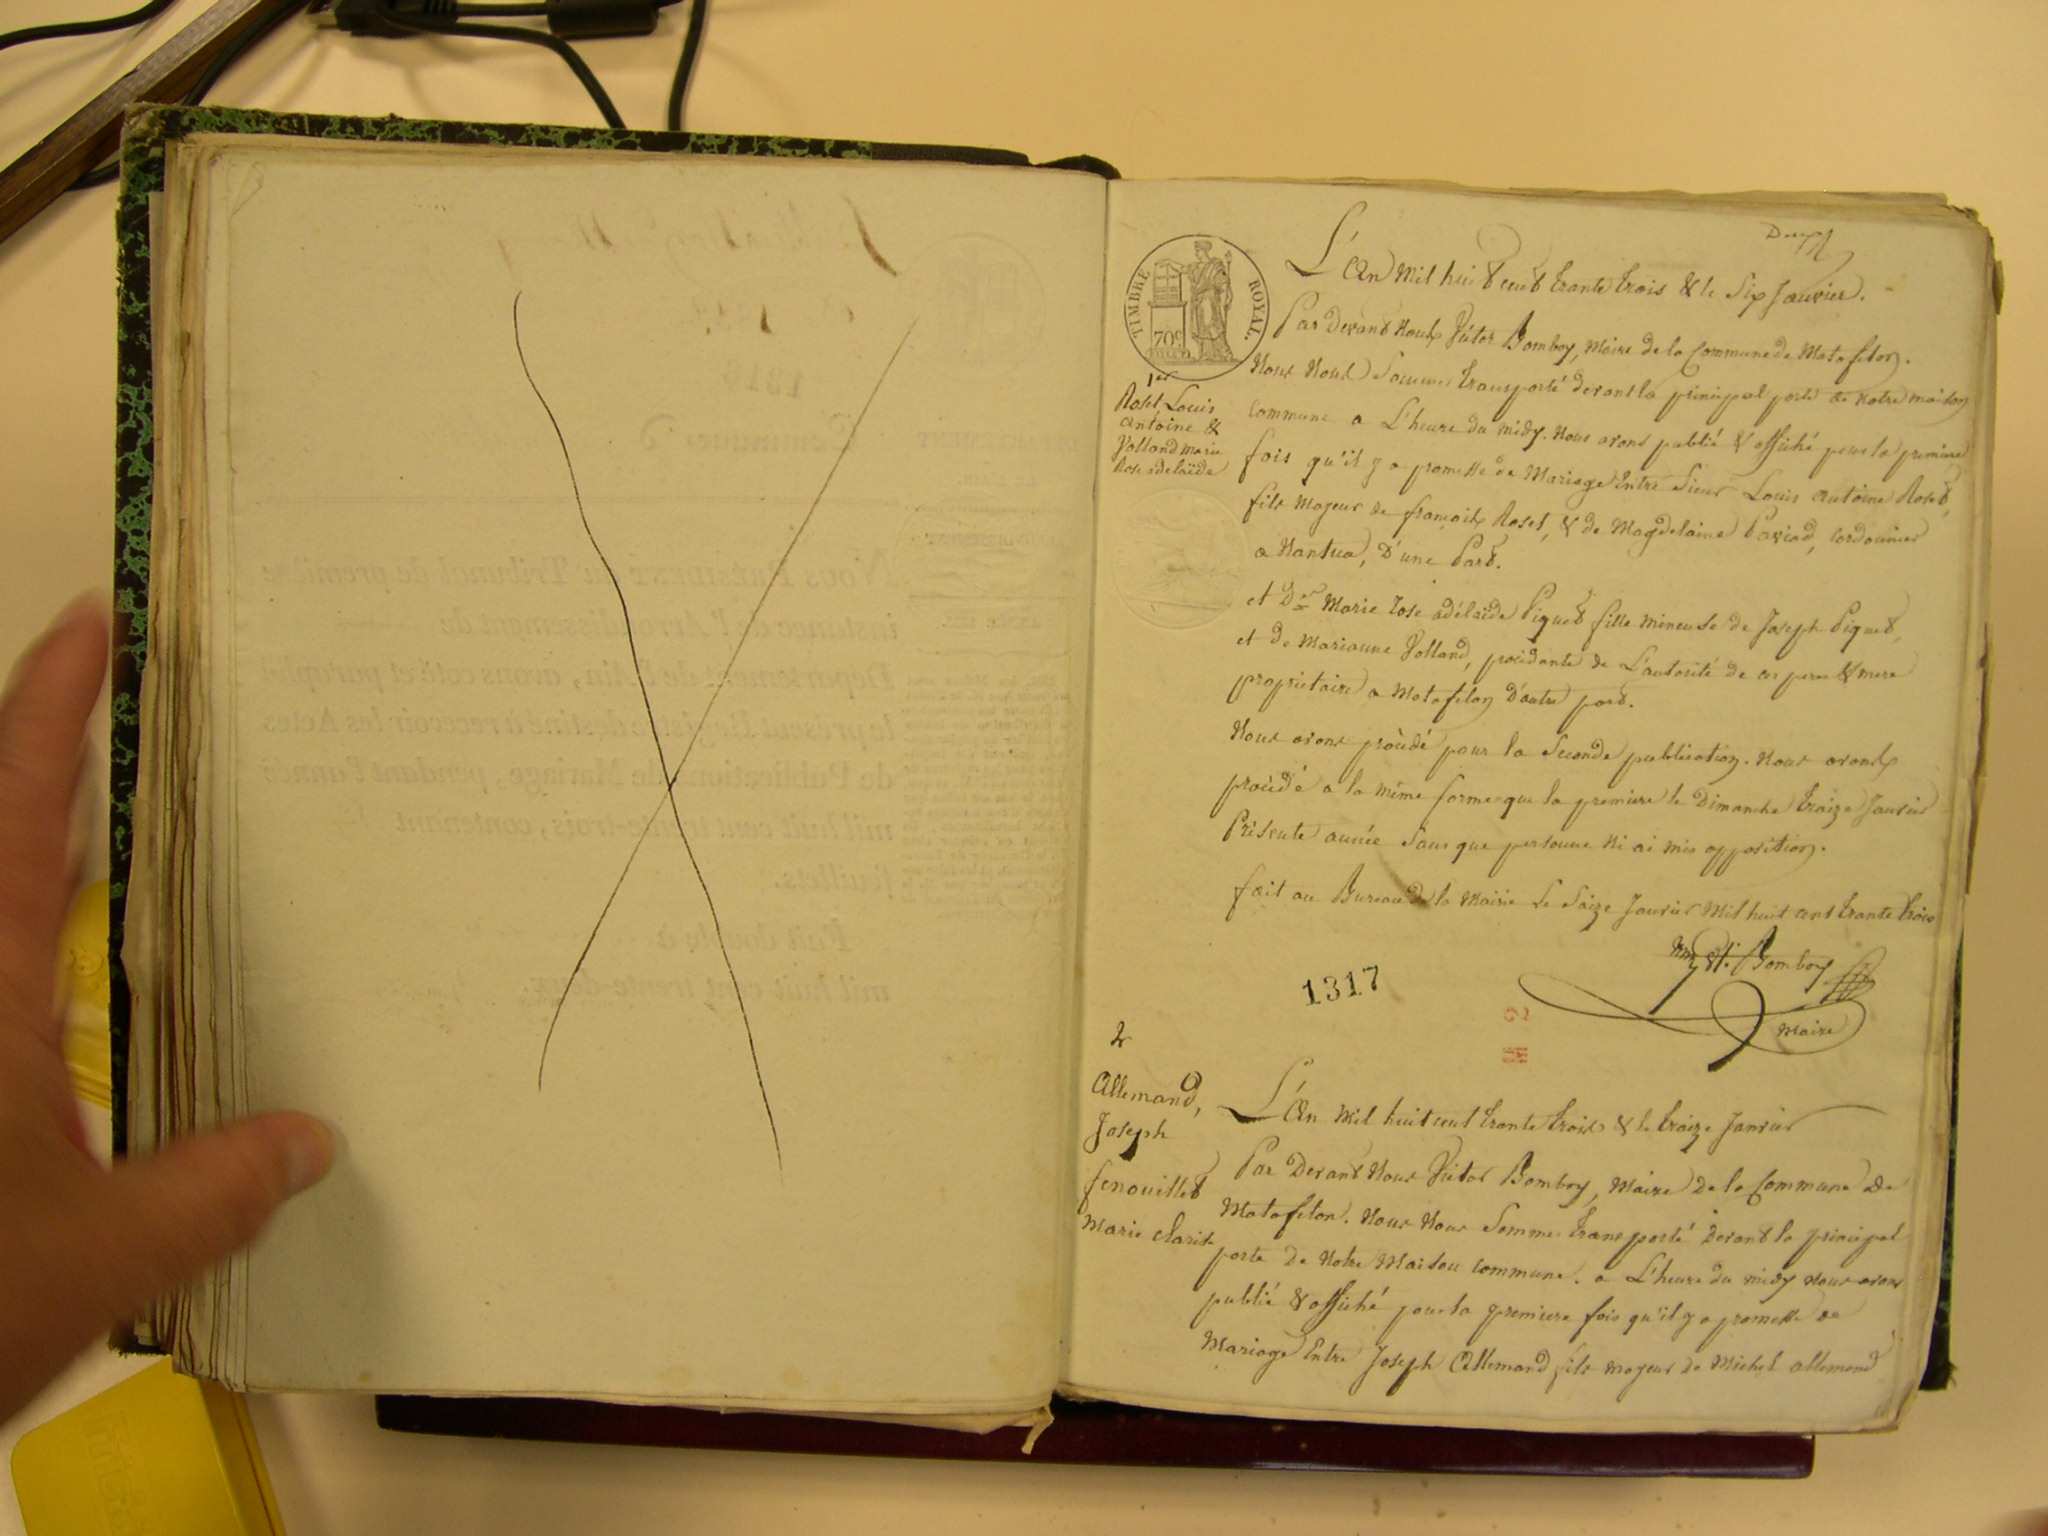 TIMBRE ROYAL
70c
L'An mil huit cent trante trois & le Six Janvier.
Par Devant Nous Victor Bomboy, Maire de la Commune de Matafelon.
Nous Nous Sommes transporté devant la principal porte de Notre maison
commune a L'heure du midy. Nous avons publié & affiché pour la premiere
fois qu'il y a promesse de Mariage Entre Sieur Louis Antoine Roset,
fils Majeur de françois Roset, & de Magdelaine Paviod, Cordonnier
a Nantua, D'une Part.
et Dlle Marie Rose adélaïde Piquet fille mineuse de Joseph Piquet,
et de Marianne Volland, procédante de L'autorité de ces pere & mere
propriétaire a Matafelon D'autre part.
Nous avons procédé pour la Seconde publication. Nous avons
procédé a la même forme que la premiere le Dimanche traize Janvier
Présente année Sans que personne ni ai mis opposition.
fait au Bureau de la Mairie Le Saize Janvier Mil huit cent trante trois
Bomboy
Maire
1er
Roset Louis
Antoine &
Volland marie
Rose adelaïde
1317
2
Allemand,
Joseph
fenouillet
Marie clarise
L'An mil huit cent trante trois & le traize Janvier
Par Devant Nous Victor Bomboy, Maire De la Commune De
Matafelon. Nous Nous Somme transporté Devant la principal
porte De Notre Maison commune. a L'heure du midy Nous avons
publié & affiché pour la premiere fois qu'il y a promesse de
Mariage Entre Joseph Allemand fils majeur de Michel allemand
NOUS PRÉSIDENT du Tribunal de première
instance de l'Arrondissement de
Département de l'Ain, avons coté et paraphé
le présent Registre destiné à recevoir les Actes
de Publications de Mariage, pendant l'année
mil huit cent trente-trois, contenant
feuillets.
Fait double à
mil huit cent trente-deux.